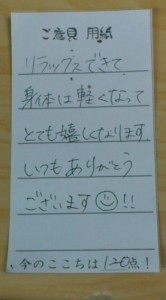 ご意見 用紙
リラックスできて
身体は軽くなって
とても嬉しくなります
いつもありがとう
ございます☺!!
今のここちは120点!